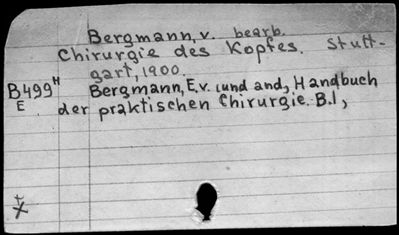 Bergmann, v. bearb.
Chirurgie des Kopfes. Stutt-
gart, 1900.
B499H Bergmann, E.v. (und and), Handbuch
E der praktischen Chirurgie. B.1,